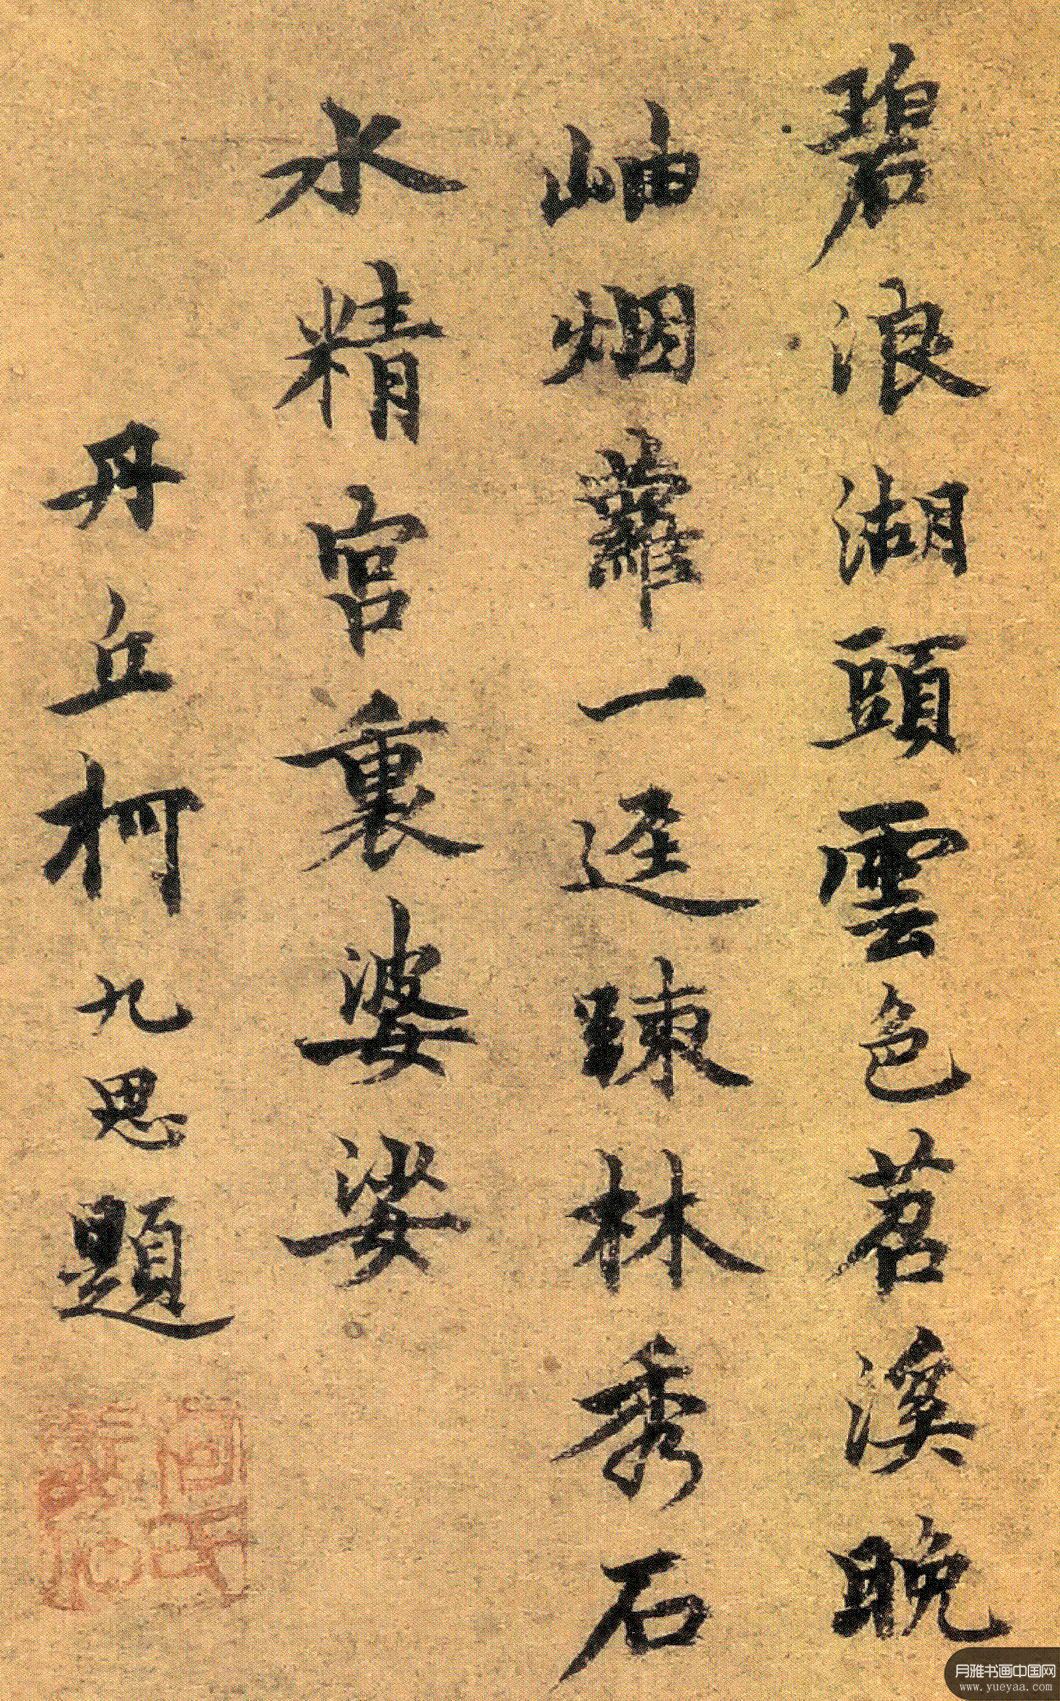 碧浪湖頭雲色苕溪晚
岫烟蘿一逕踈林秀石
水精宮裏婆娑
丹丘柯九思題
柯氏敬仲
月雅书画中国网
www.yueyaa.com